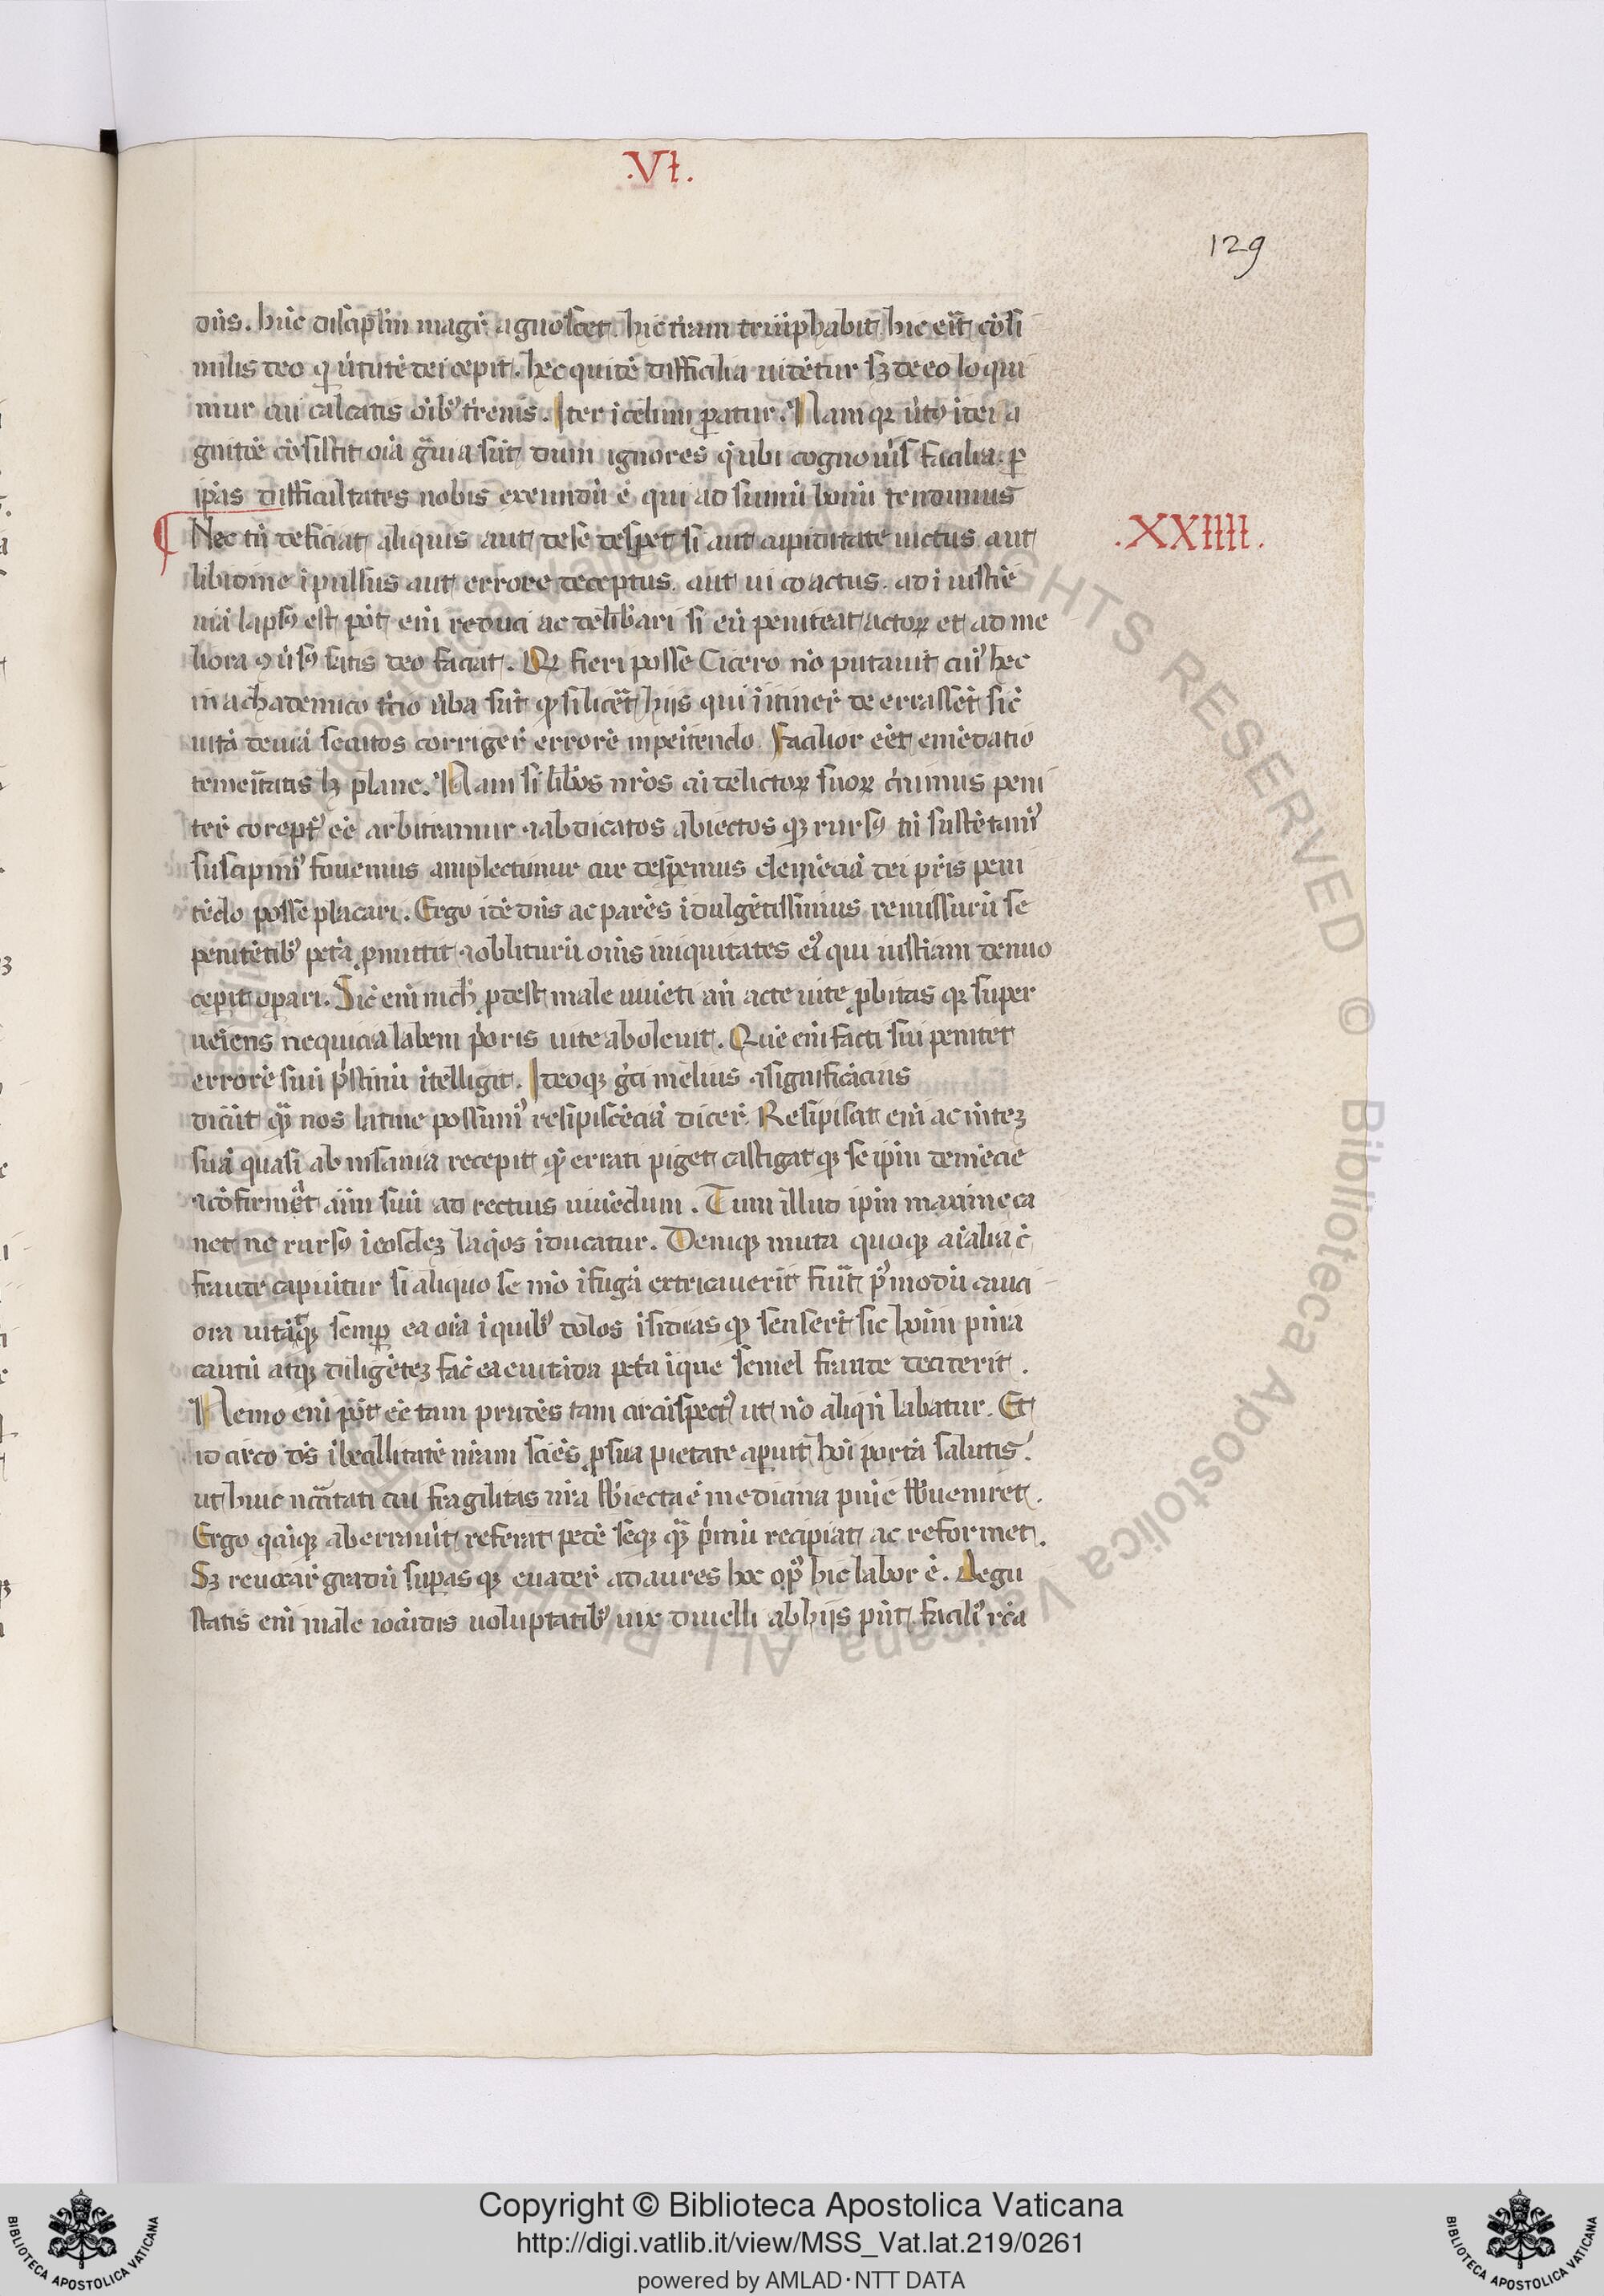 .VI.
129
dn̄s. hūc discipl̄m magr̄ agnoscet. hic t̄ram triūphabit. hic erit cōsi
milis deo q̄ ūtutē dei cepit. hec quidē difficilia uidētur sꝫ de eo loqui
mur cui calcatis oīb' t̄renis. Iter ī celum paratur. Nam qꝛ ūtꝰ ī dei a
gnitōe cōsistit oīa gͣuia sūt dum ignores q̄ ubi cognoūis facilia. ꝑ
ip̄as difficultates nobis exeundū ē qui ad sumū bonū tendimus
Nec tn̄ deficiat aliquis aut de se desꝑet si aut cupiditate uictus aut .XXIIII.
libidine īpulsus aut errore deceptus. aut ui coactus. ad īiustīe
uiā lapsꝰ est pōt enī reduci ac delib̄ari si eū peniteat actoꝝ et ad me
liora ꝯūsꝰ satis deo faciat. Qd̄ fieri posse Cicero nō putauit cuiꝰ hec
in achademico t̄cio ūba sūt qd̄ si licēt hijs qui ī itinere deerrassēt sic̄
uitā deuiā secutos corrigere errorē in penitendo. Facilior eēt emēdatio
temeritatis lꝫ plane. Nam si lib̄os nr̄os cū delictoꝝ suoꝝ c̄nimus peni
tere coreptꝰ eē arbitramur ⁊ abdicatos abiectos qꝫ rursꝰ tn̄ sustētamꝰ
suscipimꝰ fouemus amplectimur cur desperemus clemēciā dei pr̄is peni
tēdo posse placari. Ergo idē dn̄s ac parēs īdulgētissimus remissurū se
penitētibꝰ pctā ꝓmittit ⁊ obliturū om̄is iniquitates eiꝰ qui iustīciam denuo
ceperit oꝑari. Sic̄ enī nich̄ ꝓdest male uiuēti an̄ acte uite ꝓbitas qꝛ super
ueīens nequicia labem prioris uite aboleuit. Quē enī facti sui penitet
errorē suū pristinū ītelligit. Ideoqꝫ grēci melius ⁊ significācius
dicūt qͣꝫ nos latine possumꝰ resipiscēciā dicere. Resipiscit enī ac mētez
suā quasi ab insania recepit quē errati piget castigatqꝫ se ip̄m demēcie
⁊ cōfirmat aīm suū ad rectius uiuēdum. Tum illud ip̄m maxime ca
uet ne rursꝰ ī eosdez laqͦos īducatur. Deniqꝫ muta quoqꝫ aīalia cū
fraude capiūtur si aliquo se modo ī fugā extricauerīt fiūt post modū cauci
ora uitātqꝫ semꝑ ea oīa ī quibꝰ dolos īsidias qꝫ senserīt sic hoīm penitencia
cautū atqꝫ diligētez facit ea euitāda pctā ī que semel fraude deciderit.
Nemo enī pōt eē tam prudēs tam circūspectꝰ ut nō aliqn̄ labatur. Et
idcirco ds̄ ībecillitatē nr̄am sciēs ꝓ sua pietate aꝑuit hoī portā salutis.
ut huic ncc̄itati cui fragilitas nr̄a sb̄iecta ē medicina pnīe sb̄ueniret.
Ergo quicūqꝫ aberrauit referat pedē seqꝫ qͣꝫ primū recipiat ac reformet.
Sꝫ reuocare gradū supasqꝫ euadere ad aures hoc opꝰ hic labor ē. Degu
statis enī male iocūdis uoluptatibꝰ uix diuelli ab hijs pn̄t faciliꝰ rc̄a